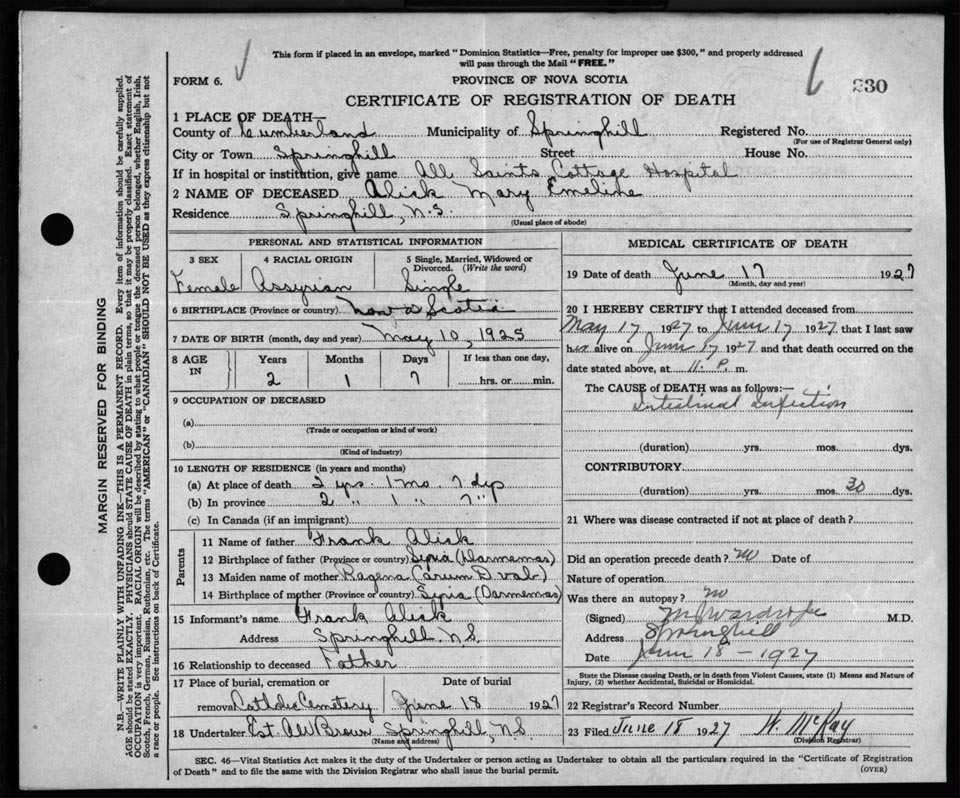 This form if placed in an envelope, marked "Dominion Statistics—Free, penalty for improper use $300," and properly addressed
will pass through the Mail "FREE."
FORM 6.
PROVINCE OF NOVA SCOTIA
6
230
CERTIFICATE OF REGISTRATION OF DEATH
1 PLACE OF DEATH—
County of Cumberland Municipality of Springhill Registered No.
(For use of Registrar General only)
City or Town Springhill Street House No.
If in hospital or institution, give name All Saints Cottage Hospital
2 NAME OF DECEASED Alick Mary Emeline
Residence Springhill, N.S.
(Usual place of abode)
PERSONAL AND STATISTICAL INFORMATION
3 SEX 4 RACIAL ORIGIN 5 Single, Married, Widowed or
Divorced. (Write the word)
Female Assyrian Single
6 BIRTHPLACE (Province or country) Nova Scotia
7 DATE OF BIRTH (month, day and year) May 10, 1925
8 AGE IN Years Months Days If less than one day,
2 1 7 hrs. or min.
9 OCCUPATION OF DECEASED
(a)
(Trade or occupation or kind of work)
(b)
(Kind of industry)
10 LENGTH OF RESIDENCE (in years and months)
(a) At place of death 2 yrs. 1 mo. 7 dys
(b) In province 2 " 1 " 7 "
(c) In Canada (if an immigrant)
Parents
11 Name of father Frank Alick
12 Birthplace of father (Province or country) Syria (Darnemas)
13 Maiden name of mother Ragena
14 Birthplace of mother (Province or country) Syria (Darnemas)
15 Informant's name Frank Alick
Address Springhill N.S.
16 Relationship to deceased Father
17 Place of burial, cremation or Date of burial
removal Catholic Cemetery June 18 1927
18 Undertaker Est. A W Brown Springhill, N.S.
(Name and address)
MEDICAL CERTIFICATE OF DEATH
19 Date of death June 17 1927
(Month, day and year)
20 I HEREBY CERTIFY that I attended deceased from
May 17 1927 to June 17 1927 that I last saw
her alive on June 17 1927 and that death occurred on the
date stated above, at 11. P. m.
The CAUSE of DEATH was as follows:—
Intestinal Infection
(duration) yrs. mos. dys.
CONTRIBUTORY
(duration) yrs. mos. 30 dys.
21 Where was disease contracted if not at place of death?
Did an operation precede death? no Date of
Nature of operation
Was there an autopsy? no
(Signed) M Wardrope M.D.
Address Springhill
Date June 18 - 1927
State the Disease causing Death, or in death from Violent Causes, state (1) Means and Nature of
Injury, (2) whether Accidental, Suicidal or Homicidal.
22 Registrar's Record Number
23 Filed June 18 1927 W. McKay
(Division Registrar)
SEC. 46—Vital Statistics Act makes it the duty of the Undertaker or person acting as Undertaker to obtain all the particulars required in the "Certificate of Registration
of Death" and to file the same with the Division Registrar who shall issue the burial permit.
(OVER)
MARGIN RESERVED FOR BINDING
N.B.—WRITE PLAINLY WITH UNFADING INK—THIS IS A PERMANENT RECORD. Every item of information should be carefully supplied.
AGE should be stated EXACTLY. PHYSICIANS should STATE CAUSE OF DEATH in plain terms, so that it may be properly classified. Exact statement of
OCCUPATION is very important. RACIAL ORIGIN will be described by stating to what people or tongue the deceased person belonged, whether English, Irish,
Scotch, French, German, Russian, Ruthenian, etc. The terms "AMERICAN" or "CANADIAN" SHOULD NOT BE USED as they express citizenship but not
a race or people. See instructions on back of Certificate.